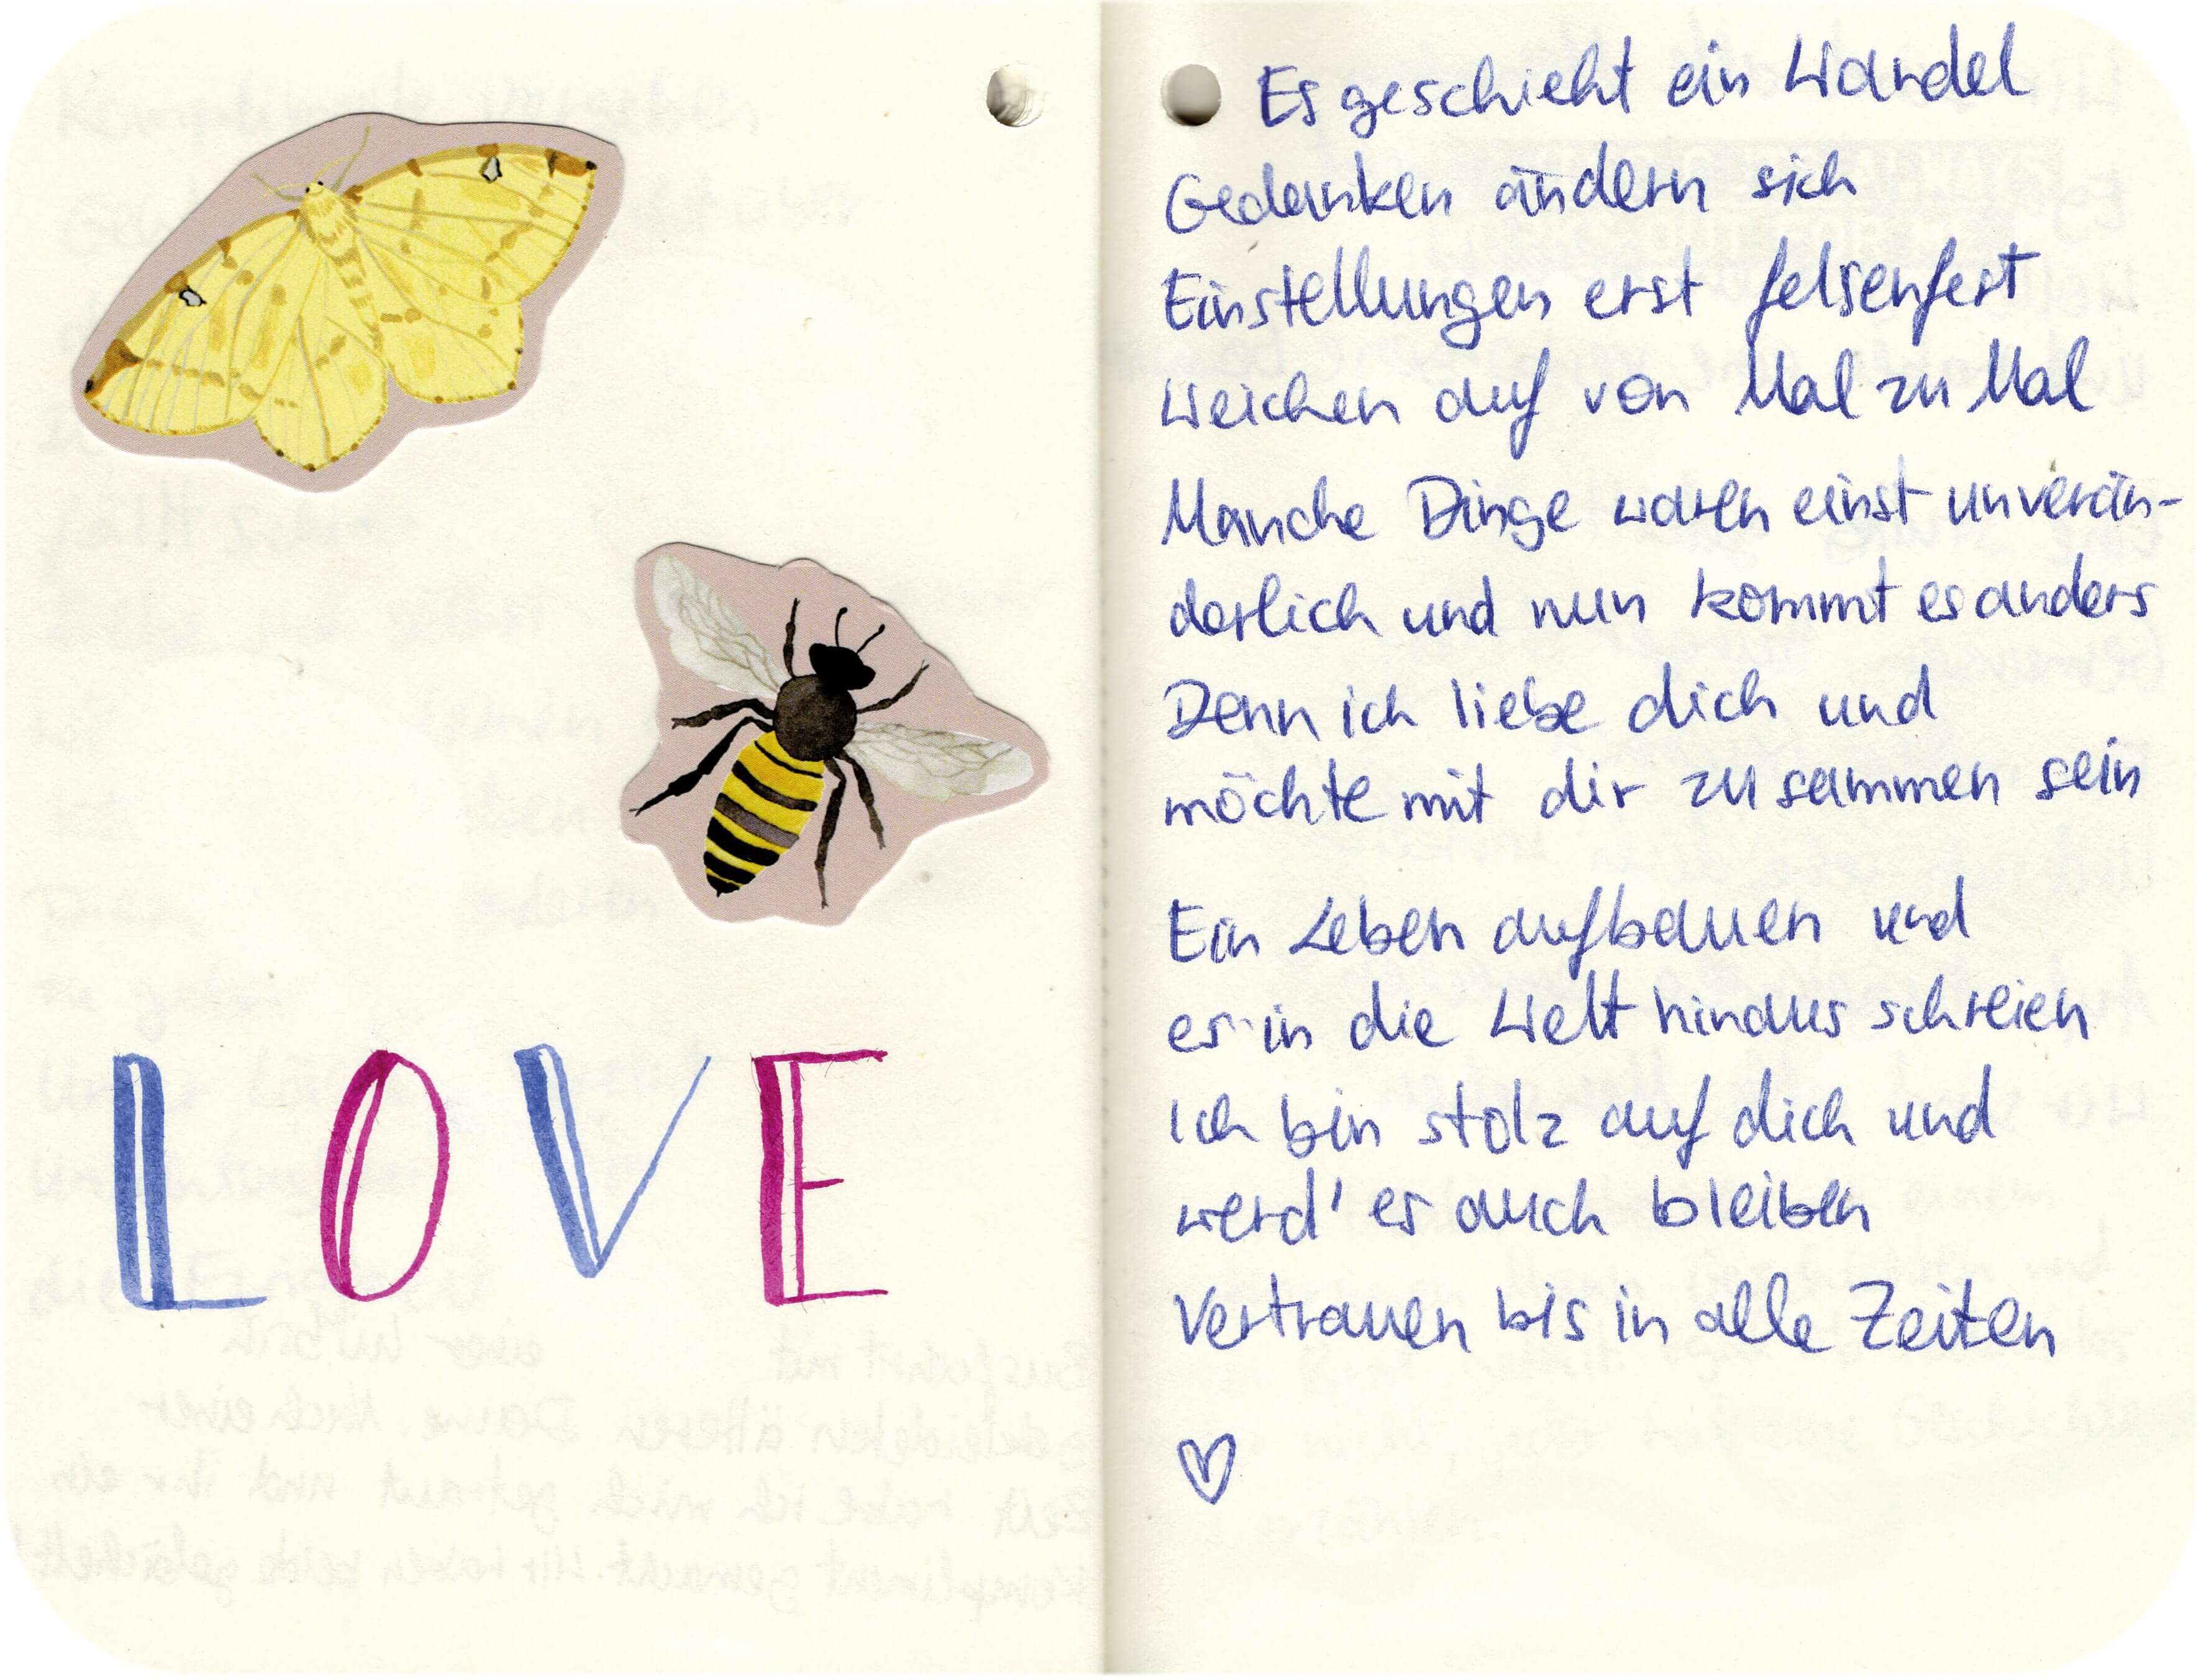 LOVE
Es geschieht ein Wandel
Gedanken ändern sich
Einstellungen erst felsenfest
weichen auf von Mal zu Mal
Manche Dinge waren einst unverän-
derlich und nun kommt es anders
Denn ich liebe dich und
möchte mit dir zusammen sein
Ein Leben aufbauen und
es in die Welt hinaus schreien
Ich bin stolz auf dich und
werd' es auch bleiben
Vertrauen bis in alle Zeiten